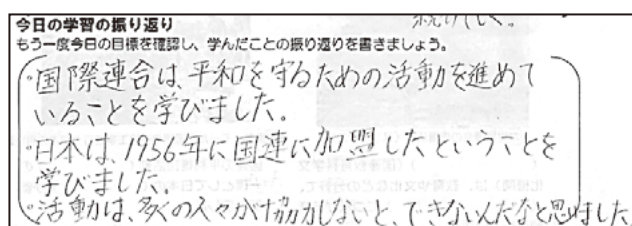 今日の学習の振り返り
もう一度今日の目標を確認し、学んだことの振り返りを書きましょう。
・国際連合は、平和を守るための活動を進めて
いることを学びました。
・日本は、1956年に国連に加盟したということを
学びました。
・活動は、多くの人々が協力しないと、できないんだなと思いました。